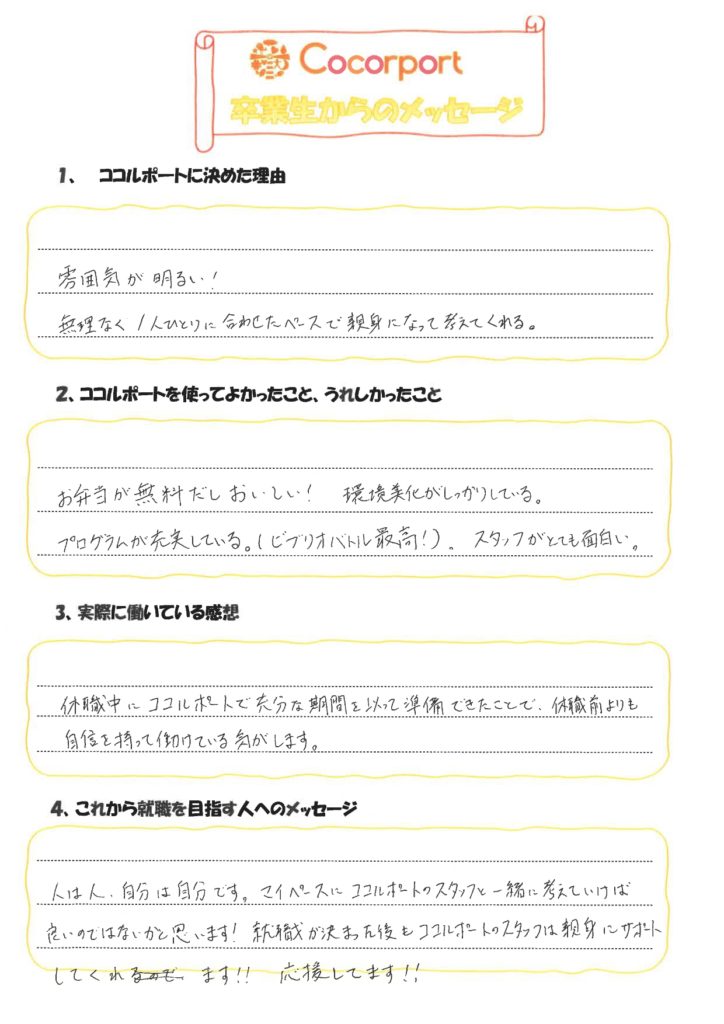 Cocorport
卒業生からのメッセージ
1、 ココルポートに決めた理由
雰囲気が明るい！
無理なく1人ひとりに合わせたペースで親身になって考えてくれる。
2、ココルポートを使ってよかったこと、うれしかったこと
お弁当が無料だしおいしい！ 環境美化がしっかりしている。
プログラムが充実している。(ビブリオバトル最高！)。スタッフがとても面白い。
3、実際に働いている感想
休職中にココルポートで充分な期間を以って準備できたことで、休職前よりも
自信を持って働けている気がします。
4、これから就職を目指す人へのメッセージ
人は人、自分は自分です。マイペースにココルポートのスタッフと一緒に考えていけば
良いのではないかと思います！就職が決まった後もココルポートのスタッフは親身にサポート
してくれるので、ます!! 応援してます!!